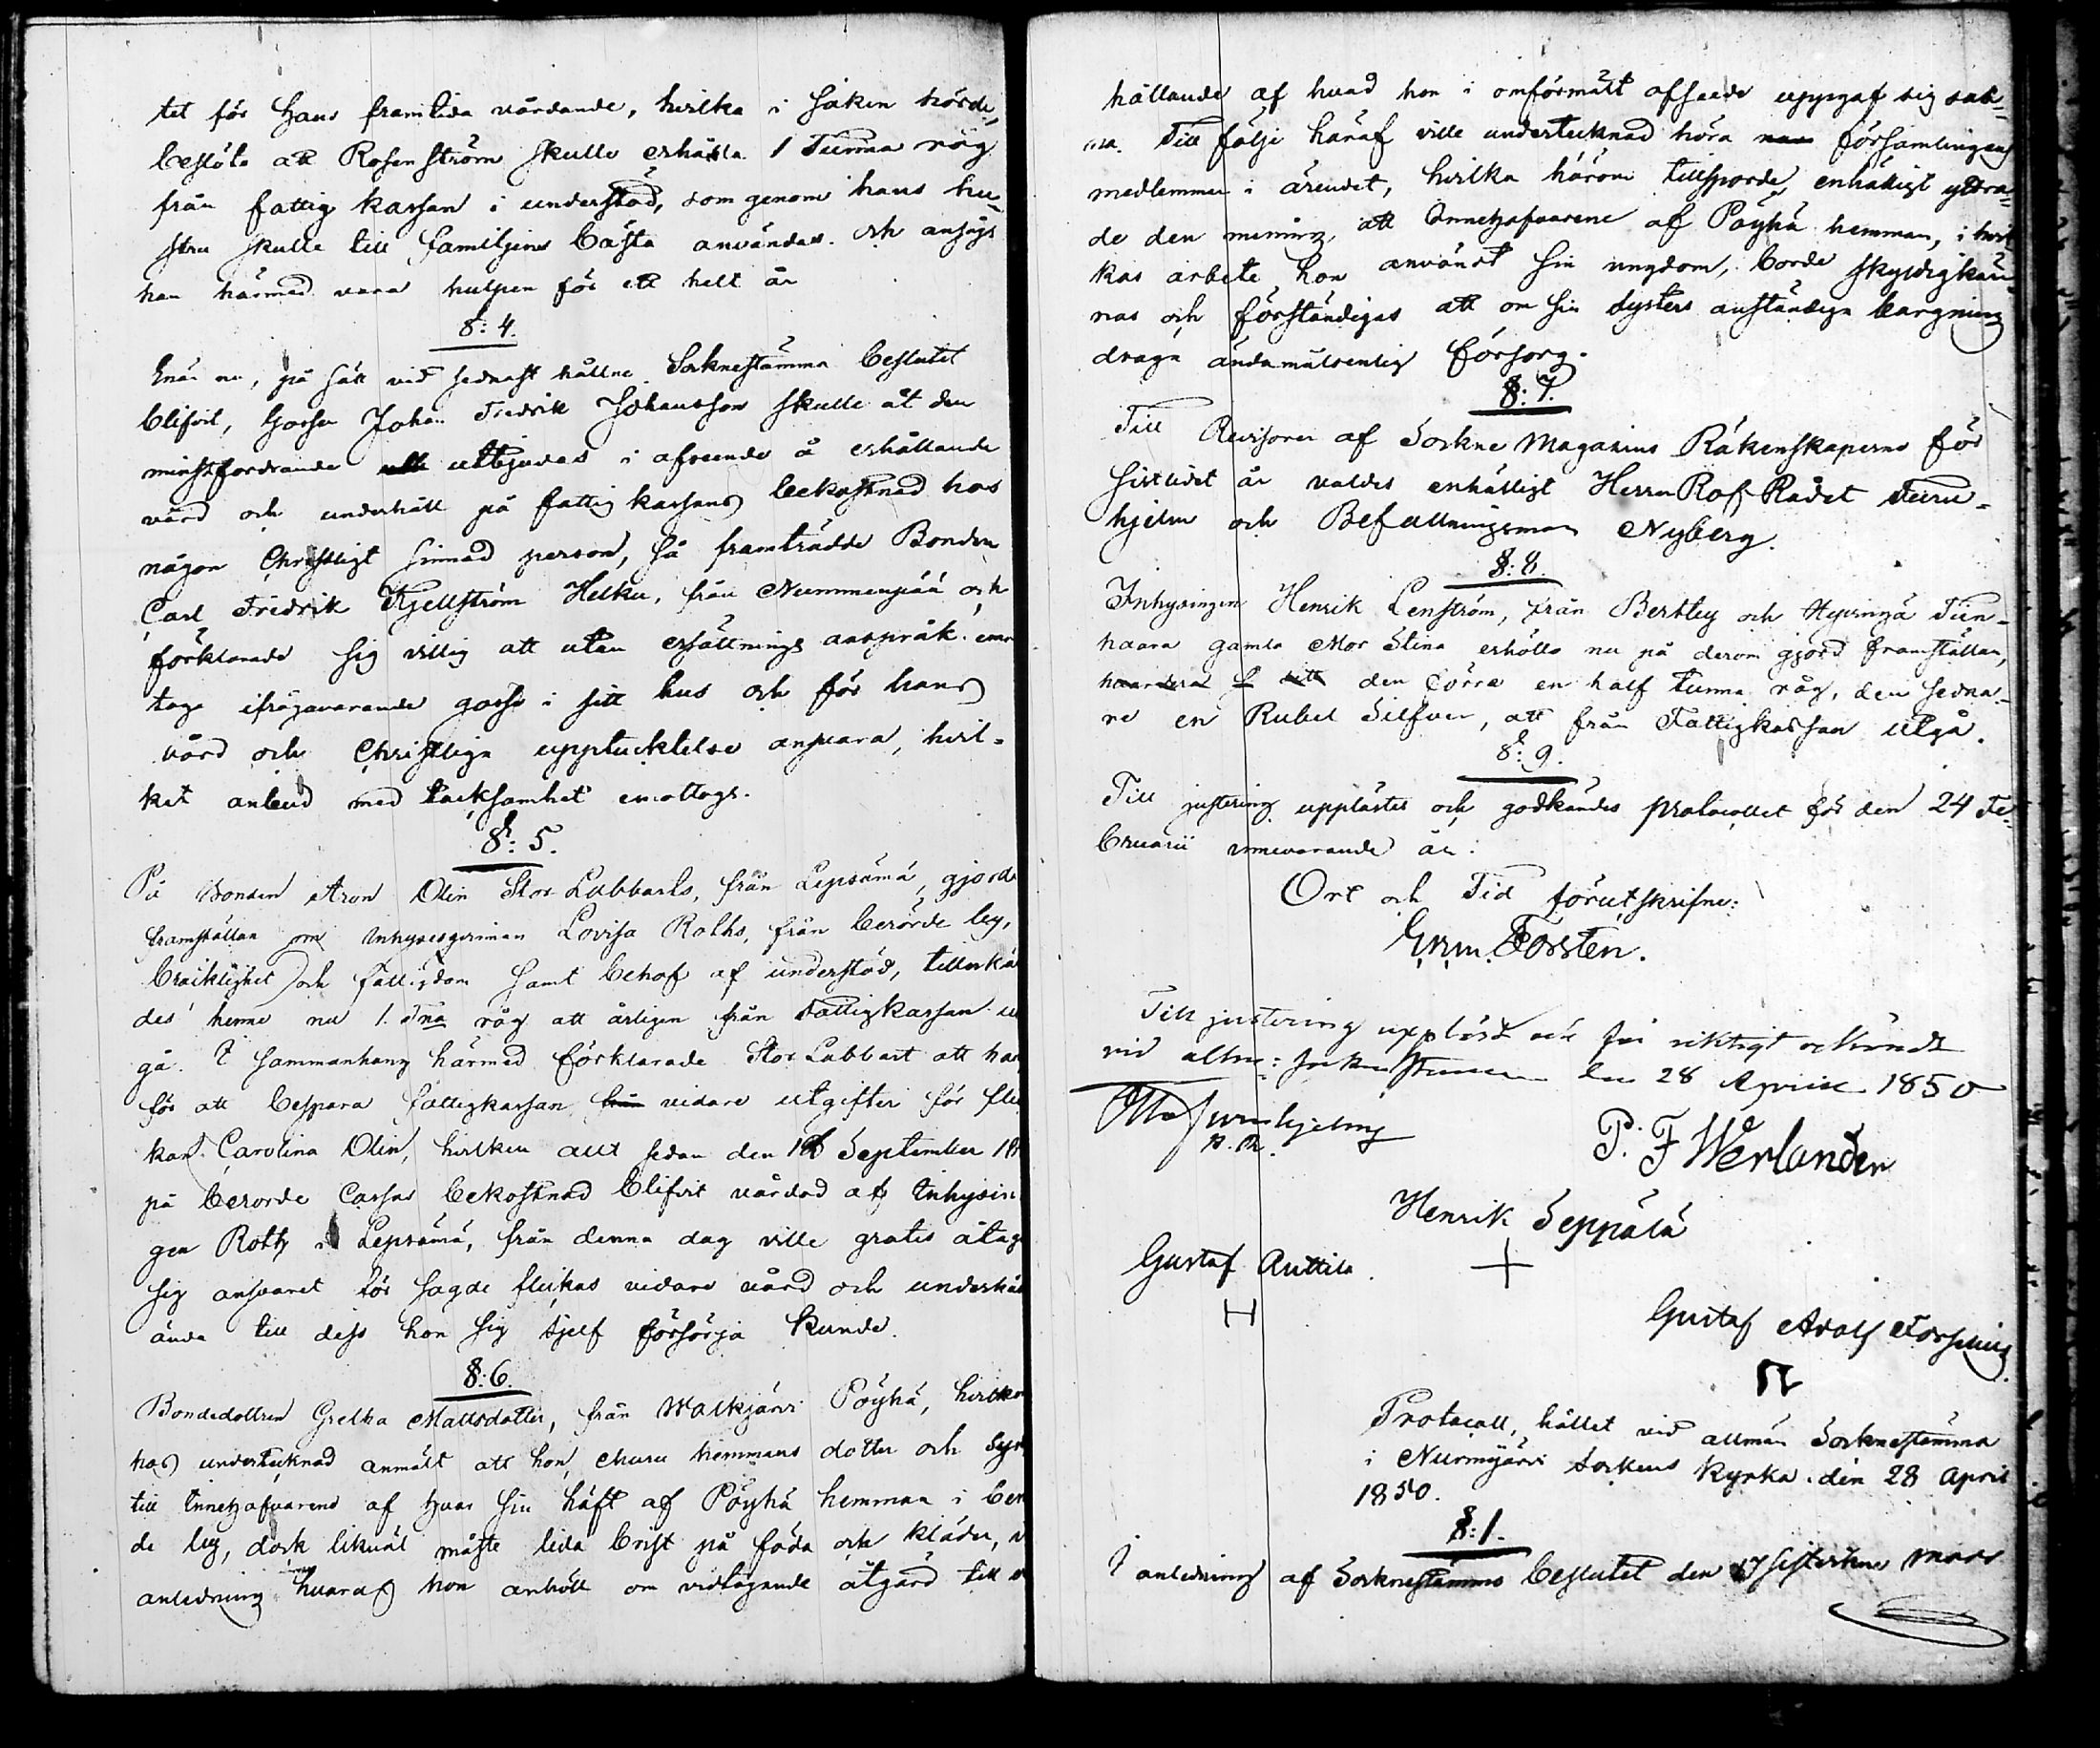 tet för hans framtida vårdande, hvilka i saken hörde,
beslöto att Rosenström skulle erhålla 1 Tunna råg
från fattig kassan i understöd, som genom hans hu-
stru skulle till familjens bästa användas. och ansågs
han härmed vara hulpen för ett helt år
§: 4.
Enär nu, på sätt vid sednast hållne Socknestämma beslutet
blifvit, gossen Johan Fredrik Johansson skulle åt den
minstfordrande utbjudas i afseende å erhållande
vård och underhåll på fattig kassans bekostnad hos
någon Christligt sinnad person, så framträdde Bonden
Carl Fredrik Kjellström Helku, från Nummenpää och
förklarade sig villig att utan ersättnings anspråk emot
taga ifrågavarande gosse i sitt hus och för hans
vård och Christliga upptucktelse ansvara, hvil-
ket anbud med tacksamhet emottogs.
§: 5.
På Bonden Aron Olin Stor Labbarts, från Lepsämä, gjorde
framställan om Inhysesqvinnan Lovisa Roths, från berörde by,
bräcklighet och fattigdom samt behof af understöd, tillerkän
des henne nu 1. Tna råg att årligen från Fattigkassan ut
gå. I sammanhang härmed förklarade Stor Labbart att han
för att bespara fattigkassan från vidare utgifter för flic
kan Carolina Olin, hvilken allt sedan den September 18
på berörde Cassas bekostnad blifvit vårdad af Inhysin
gen Roth i Lepsämä, från denna dag ville gratis åtag
sig ansvaret för sagde flickas vidare vård och underhåll
ända till dess hon sig sjelf försörja kunde.
§: 6.
Bondedottren Gretha Mattsdotter, från Walkjärvi Pöyhä, hvilken
hos undertecknad anmält att hon, ehuru hemmans dotter och Syst
till Innehafvarene af hvar sin häft af Pöyhä hemman i berör
de by, dock likväl måste lida brist på föda och kläder, i
anledning hvaraf hon anhöll om vidtagande åtgärd till
hållande af hvad hon i omförmält afseende uppgaf sig sak-
na. Till följe häraf ville undertecknad höra församlingens
medlemmar i ärendet, hvilka härom tillsporde, enhäligt yttra-
de den mening att Innehafvarene af Pöyhä hemman, i hvil
kas arbete hon användt sin ungdom, borde skyldigkän
nas och förständigas att om sin Systers anständiga bargning
draga ändamålsenlig försorg.
§: 7.
Till Revisorer af Sockne Magasins Räkenskaperna för
sistlidet år valdes enhälligt Herrn Hof Rådet Furu-
hjelm och Befallningsman Nyberg.
§: 8.
Inhysingen Henrik Lenström, från Bertby och Hyvingä Tiin-
haara gamla Mor Stina erhöllo nu på derom gjord framställan,
den förra en half tunna råg, den sedna-
re en Rubel Silfver, att från Fattigkassan utgå.
§: 9.
Till justering upplästes och godkändes Protocollet för den 24 Fe-
bruarii innevarande år.
Ort och Tid förutskrifne:
Grm. Forstén.
Till justering uppläst och för riktigt erkändt
vid allm: Socknestämma den 28 Aprill 1850
Otto Furuhjelm
P. F Werlander
Henrik Seppälä
Gustaf Anttila
Gustaf Adolf Forsling
Protocoll, hållet vid allmän Socknestämma
i Nurmijärvi Sockens Kyrka den 28 April
1850.
§: 1.
I anledning af Socknestämmo beslutet den 17 sistvikne Mars